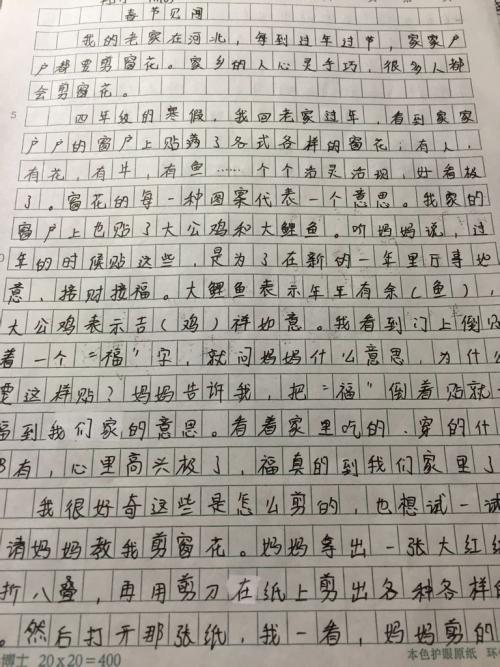 春节见闻
我的老家在河北，每到过年过节，家家户
户都要剪窗花。家乡的人心灵手巧，很多人都
会剪窗花。
5
四年级的寒假，我回老家过年，看到家家
户户的窗户上贴满了各式各样的窗花：有人，
有花，有牛，有鱼……个个活灵活现，好看极
了。窗花的每一种图案代表一个意思。我家的
窗户上也贴了大公鸡和大鲤鱼。听妈妈说，过
年的时候贴这些，是为了在新的一年里万事如
意，接财接福。大鲤鱼表示年年有余（鱼），
大公鸡表示吉（鸡）祥如意。我看到门上倒
着一个“福”字，就问妈妈什么意思，为什
要这样贴？妈妈告诉我，把“福”倒着贴就
福到我们家的意思。看着家里吃的、穿的什
都有，心里高兴极了，福真的到我们家里了
我很好奇这些是怎么剪的，也想试一试
请妈妈教我剪窗花。妈妈拿出一张大红纸
折八叠，再用剪刀在纸上剪出各种各样的
。然后打开那张纸，我一看，妈妈剪的
博士 20×20=400
本色护眼原纸 环